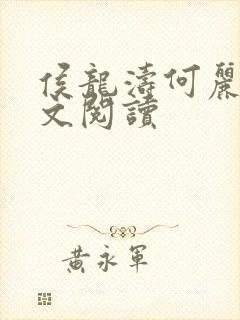 侯龍濤何麗
文閱讀
黃永軍